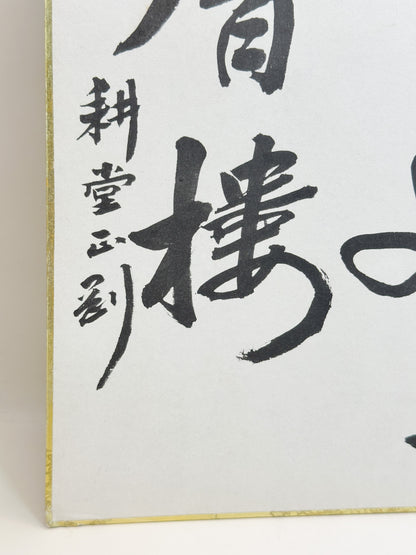 層樓
耕堂正剛